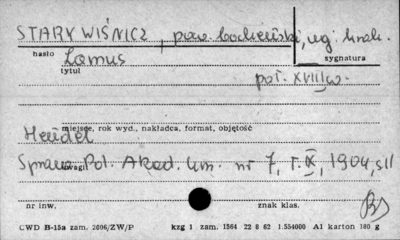 STARY WIŚNICZ, pow. bocheński, reg. krak.
hasło sygnatura
Lamus
tytuł
poł. XVIII w.
miejsce, rok wyd., nakładca, format, objętość
Hendel
Spraw. Pol. Akad. Um. nr 7, r. IX, 1904, s 11
uwagi
nr inw. znak klas.
CWD B-15a zam. 2806/ZW/P kzg 1 zam. 1564 22 8 62 1.554000 A1 karton 180 g